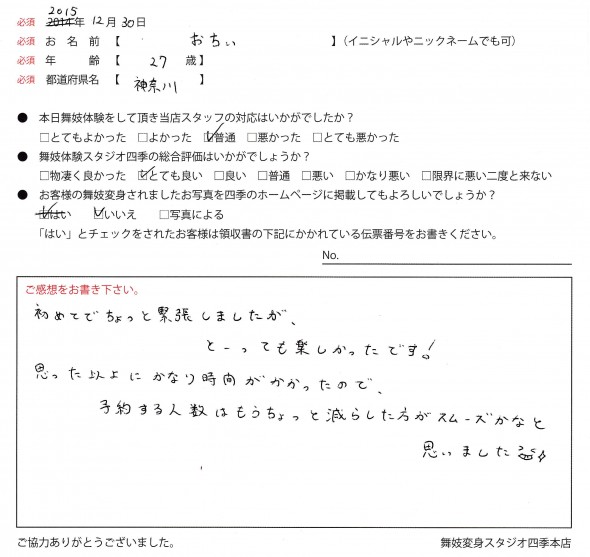 2015
必須 2014年 12月 30日
必須 お名前【 おちぃ 】（イニシャルやニックネームでも可）
必須 年 齢【 27 歳】
必須 都道府県名【 神奈川 】
● 本日舞妓体験をして頂き当店スタッフの対応はいかがでしたか？
□とてもよかった □よかった ☑普通 □悪かった □とても悪かった
● 舞妓体験スタジオ四季の総合評価はいかがでしょうか？
□物凄く良かった ☑とても良い □良い □普通 □悪い □かなり悪い □限界に悪い二度と来ない
● お客様の舞妓変身されましたお写真を四季のホームページに掲載してもよろしいでしょうか？
☑はい ☑いいえ □写真による
「はい」とチェックをされたお客様は領収書の下記にかかれている伝票番号をお書きください。
No.
ご感想をお書き下さい。
初めてでちょっと緊張しましたが、
とーっても楽しかったです!
思った以上にかなり時間がかかったので、
予約する人数はもうちょっと減らした方がスムーズかなと
思いました
ご協力ありがとうございました。 舞妓変身スタジオ四季本店